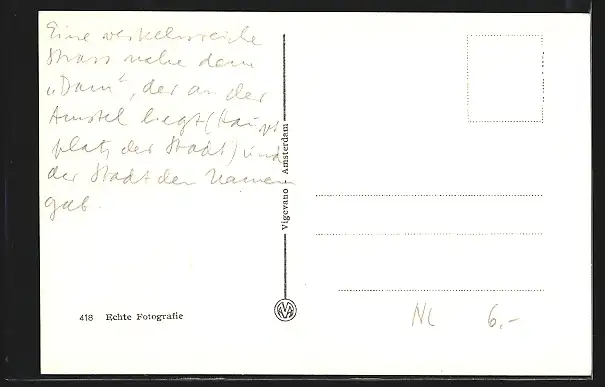 Eine verkehrsreiche
Strass nahe dem
„Dam“, der an der
Amstel liegt (Haupt
platz der Stadt) und
der Stadt den Namen
gab.
Vigevano Amsterdam
418 Echte Fotografie
NL 6,-